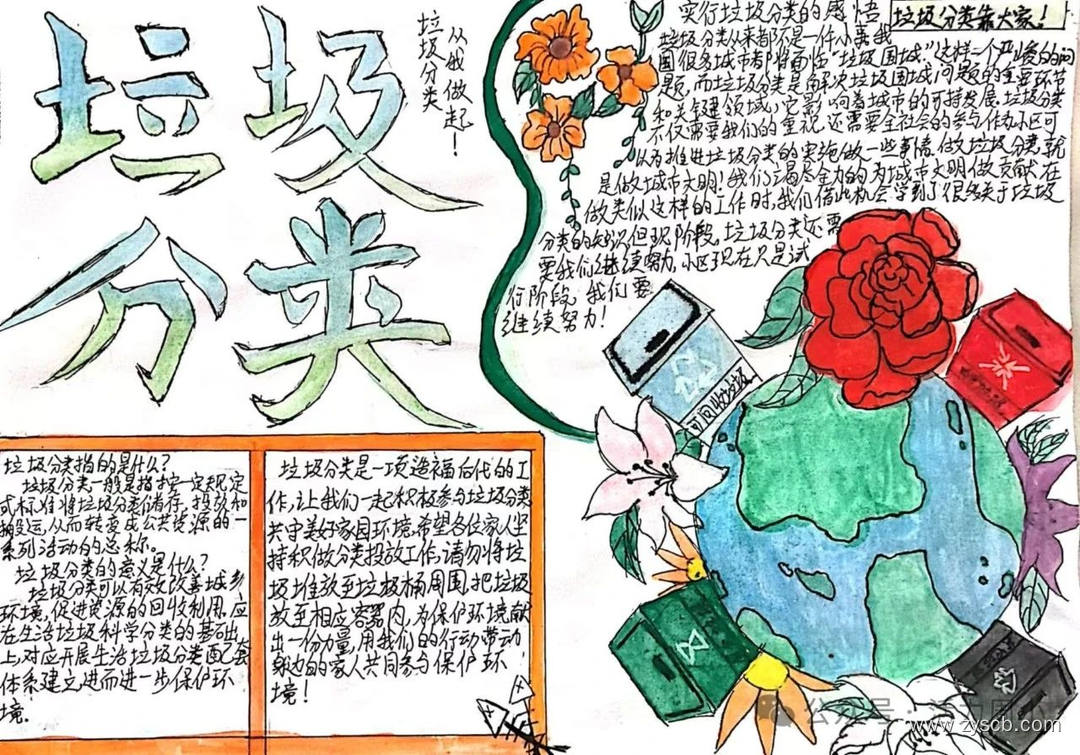 垃圾
分类
垃圾分类
从我做起！
垃圾分类靠大家！
实行垃圾分类的感悟
垃圾分类从来都不是一件小事我
国很多城市都即将面临“垃圾围城”这样一个严峻的问
题，而垃圾分类是解决垃圾围城问题的重要环节
和关键领域，它影响着城市的可持发展.垃圾分类
不仅需要我们的重视，还需要全社会的参与作为小区可
以为推进垃圾分类的实施做一些事情.做垃圾分类就
是做城市文明！我们了竭尽全力的为城市文明做贡献在
做类似这样的工作时，我们借此机会学到了很多关于垃圾
分类的知识但现阶段，垃圾分类还需
要我们继续努力，小区现在只是试
行阶段，我们要
继续努力！
垃圾分类指的是什么？
垃圾分类一般是指按一定规定
式标准将垃圾分类储存，投放和
搬运，从而转变成公共资源的一
系列活动的总称。
垃圾分类的意义是什么？
垃圾分类可以有效改善城乡
环境，促进资源的回收利用，应
在生活垃圾科学分类的基础
上，对应开展生活垃圾分类配套
体系建立，进而进一步保护环
境.
垃圾分类是一项造福后代的工
作，让我们一起积极参与垃圾分类
共守美好家园环境.希望各位家人坚
持积做分类投放工作，请勿将垃
圾堆放至垃圾桶周围，把垃圾
放至相应容器内，为保护环境献
出一份力量，用我们的行动带动
身边的家人共同参与保护环
境！
可回收垃圾
公众号
www.zyscb.com